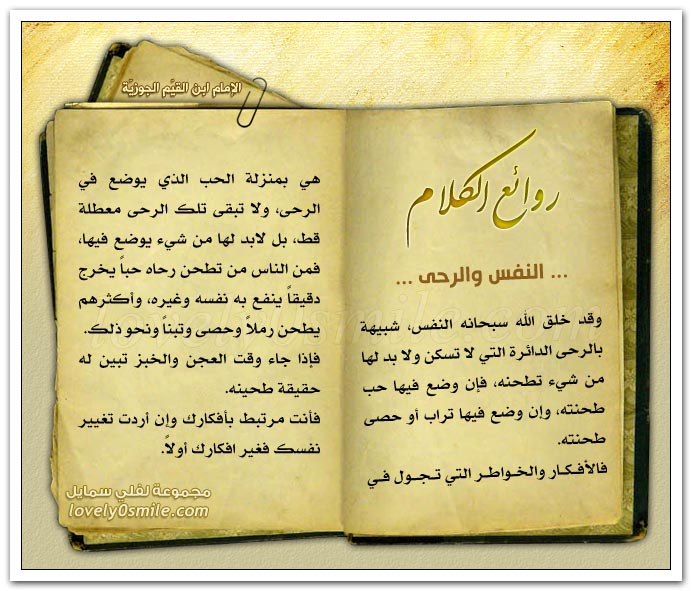 الإمام ابن القيّم الجوزيّة
روائع الكلام
... النفس والرحى ...
وقد خلق الله سبحانه النفس، شبيهة
بالرحى الدائرة التي لا تسكن ولا بد لها
من شيء تطحنه، فإن وضع فيها حب
طحنته، وإن وضع فيها تراب أو حصى
طحنته.
فالأفكار والخواطر التي تجول في
هي بمنزلة الحب الذي يوضع في
الرحى، ولا تبقى تلك الرحى معطلة
قط، بل لابد لها من شيء يوضع فيها،
فمن الناس من تطحن رحاه حباً يخرج
دقيقاً ينفع به نفسه وغيره، وأكثرهم
يطحن رملاً وحصى وتبناً ونحو ذلك.
فإذا جاء وقت العجن والخبز تبين له
حقيقة طحينه.
فأنت مرتبط بأفكارك وإن أردت تغيير
نفسك فغير افكارك أولاً.
مجموعة لفلي سمايل
lovely0smile.com
lovely0smile.com